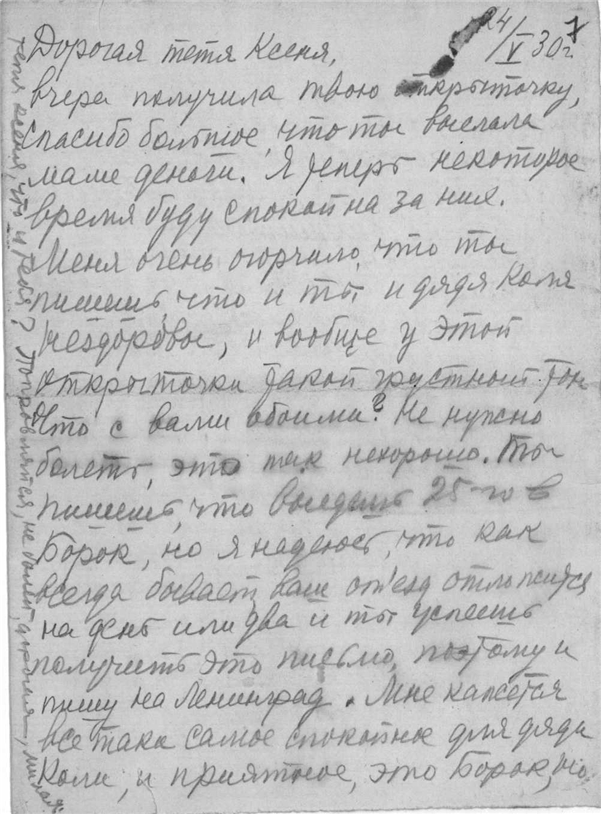 24/V 30 г.
7
Дорогая тетя Ксеня,
вчера получила твою открыточку,
спасибо большое, что ты выслала
маме деньги. Я теперь некоторое
время буду спокойна за ния.
Меня очень огорчило, что ты
пишешь что и ты и дядя Коля
нездоровы, и вообще у этой
открыточки такой грустный тон
Что с вами обоими? Не нужно
болеть, это так нехорошо. Ты
пишешь, что выедешь 25-го в
Борок, но я надеюсь, что как
всегда бывает ваш от'езд отложится
на день или два и ты успеешь
получить это письмо, поэтому и
пишу на Ленинград. Мне кажется
все таки самое спокойное для дяди
Коли, и приятное, это Борок, но
тетя Ксеня, что у тебя? Поправляйся, не болей, дорогая, милая.